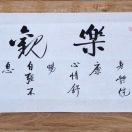 樂觀
身體健
康心情舒
暢自强不
息